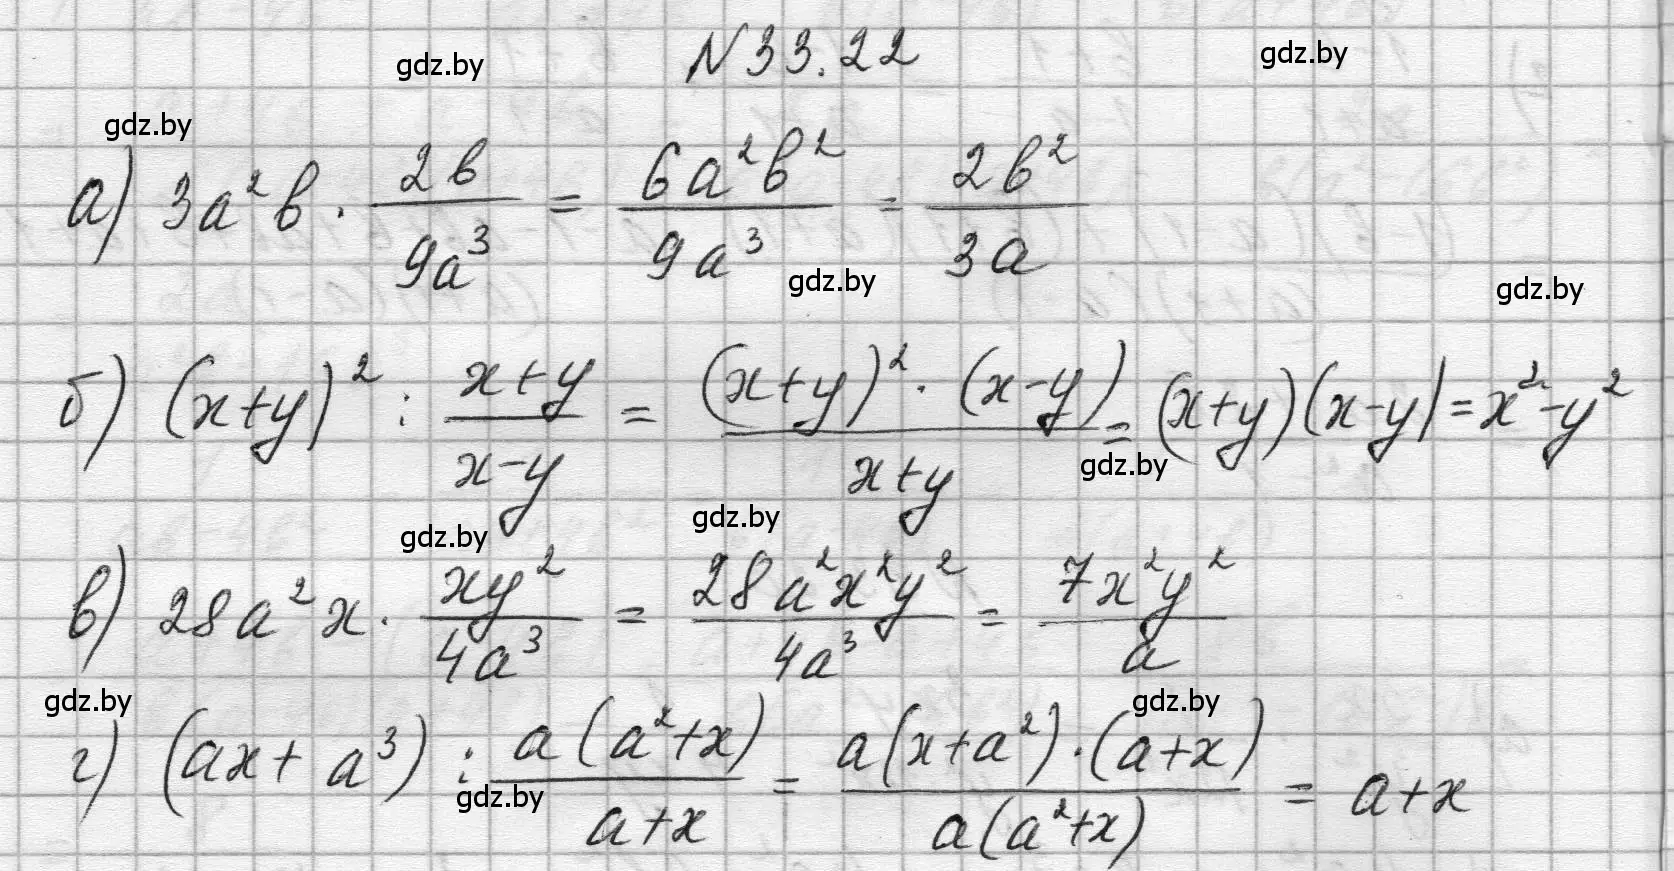 N 33.22
gdz.by gdz.by
gdz.by
а) 3a²b · 2b/9a³ = 6a²b²/9a³ = 2b²/3a
gdz.by gdz.by
б) (x+y)² : (x+y)/(x-y) = (x+y)² · (x-y)/(x+y) = (x+y)(x-y) = x²-y²
gdz.by
gdz.by gdz.by
в) 28a²x · xy²/4a³ = 28a²x²y²/4a³ = 7x²y²/a
gdz.by gdz.by
г) (ax + a³) : a(a²+x)/(a+x) = a(x+a²)·(a+x)/a(a²+x) = a+x
gdz.by